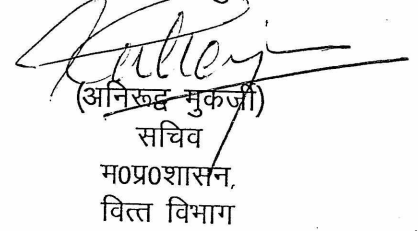 (अनिरूद्ध मुकर्जी)
सचिव
म0प्र0शासन,
वित्त विभाग